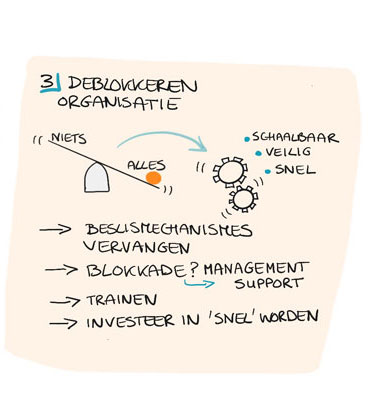 3 DEBLOKKEREN
ORGANISATIE
NIETS
ALLES
• SCHAALBAAR
• VEILIG
• SNEL
→ BESLISMECHANISMES
VERVANGEN
→ BLOKKADE? MANAGEMENT
↳ SUPPORT
→ TRAINEN
→ INVESTEER IN 'SNEL' WORDEN